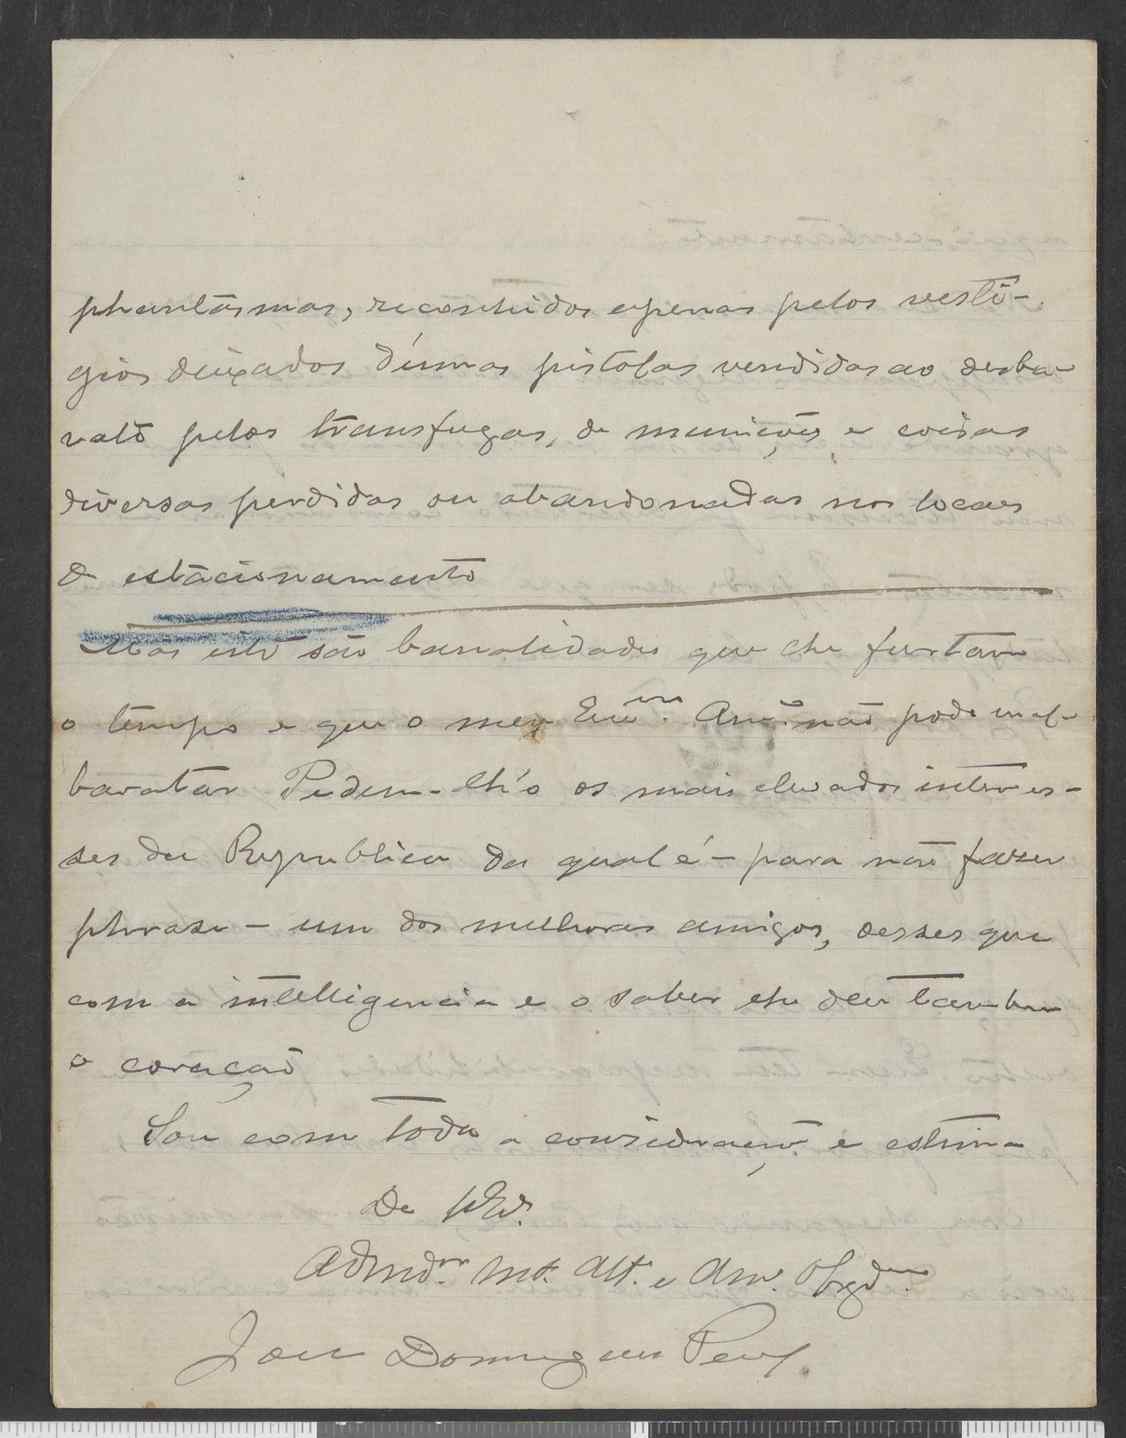 phantasmas, reconhidos apenas pelos vesti-
gios deixados d'umas pistolas vendidas ao desba-
rato pelos transfugas, de munições e coisas
diversas perdidas ou abandonadas nos locaes
de estacionamento
Mas isto são banalidades que lhe furtam
o tempo e que o meu Exmo. Amo. não pode mal-
baratar Pedem-lh'o os mais elevados interes-
ses da Republica da qual é - para não fazer
phrase - um dos melhores amigos, desses que
com a intelligencia e o saber lhe deu tambem
o coração
Sou com toda a consideração e estima
De V.
Admdor. Mt. Att. e Amo. Obgdmo.
José Domingues Peres